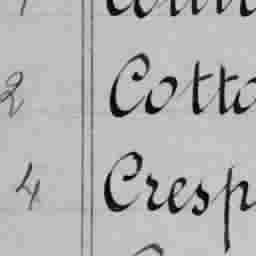 2 Cotto
4 Cresp